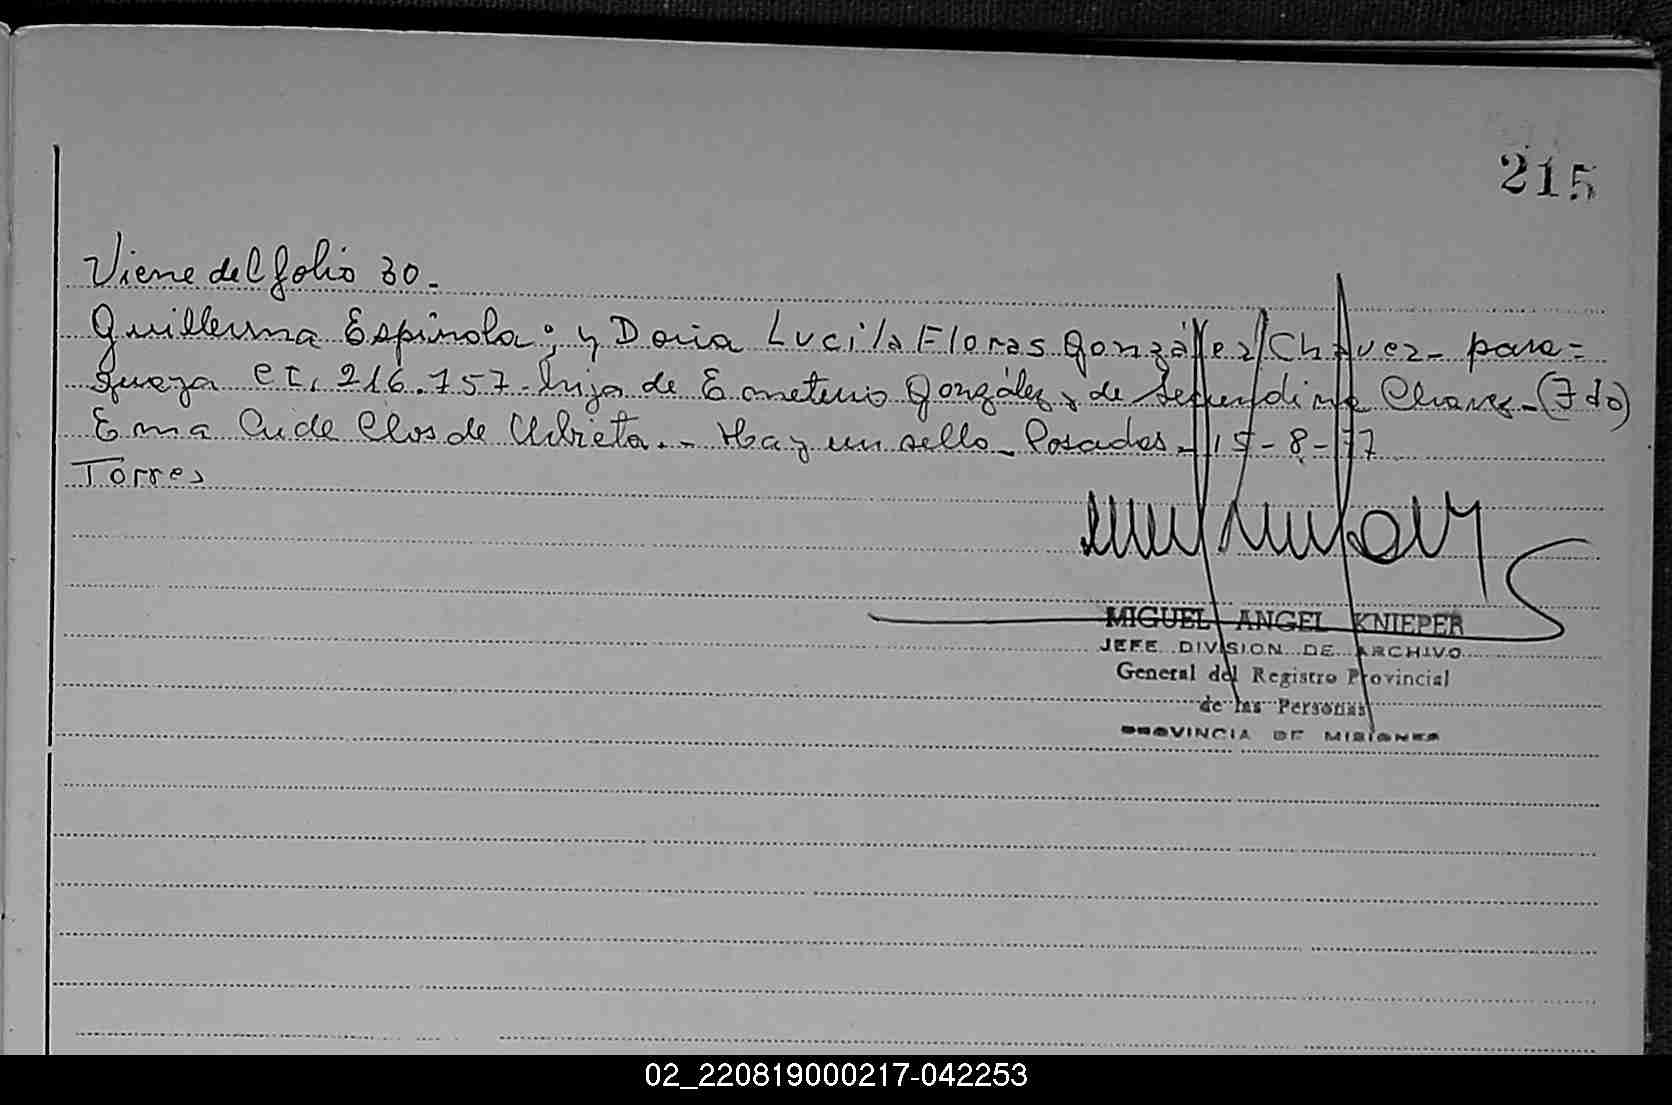 215
Viene del folio 30.-
Guillerma Espínola; y Doria Lucila Flores González Chavez- para=
guaya CI. 216.757- hija de Emeterio González y de Segundina Chavez-(Fdo)
Ema Cude Clos de Urbieta.- Hay un sello- Posadas- 15-8-77
Torres
MIGUEL ANGEL KNIEPER
JEFE DIVISION DE ARCHIVO
General del Registro Provincial
de las Personas
PROVINCIA DE MISIONES
02_220819000217-042253